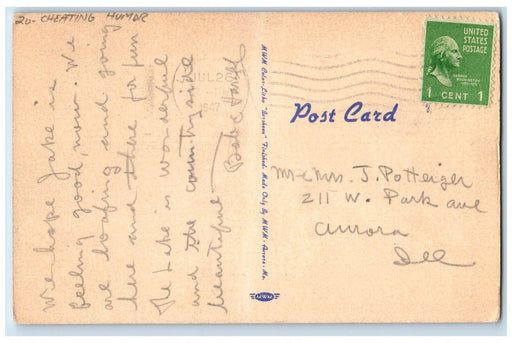 20- CHEATING HUMOR
We hope Jake is
feeling good, now. We
are loafing and going
here and there for fun
The Lake is wonderful
and the countryside
beautiful
JUL 26
1947
MWM Color-Litho
Finished. Made Only By MWM - Aurora, Mo.
MWM
Post Card
UNITED
STATES
POSTAGE
1 CENT 1
Mr & Mrs. J. Potteiger
211 W. Park ave
Aurora
Ill